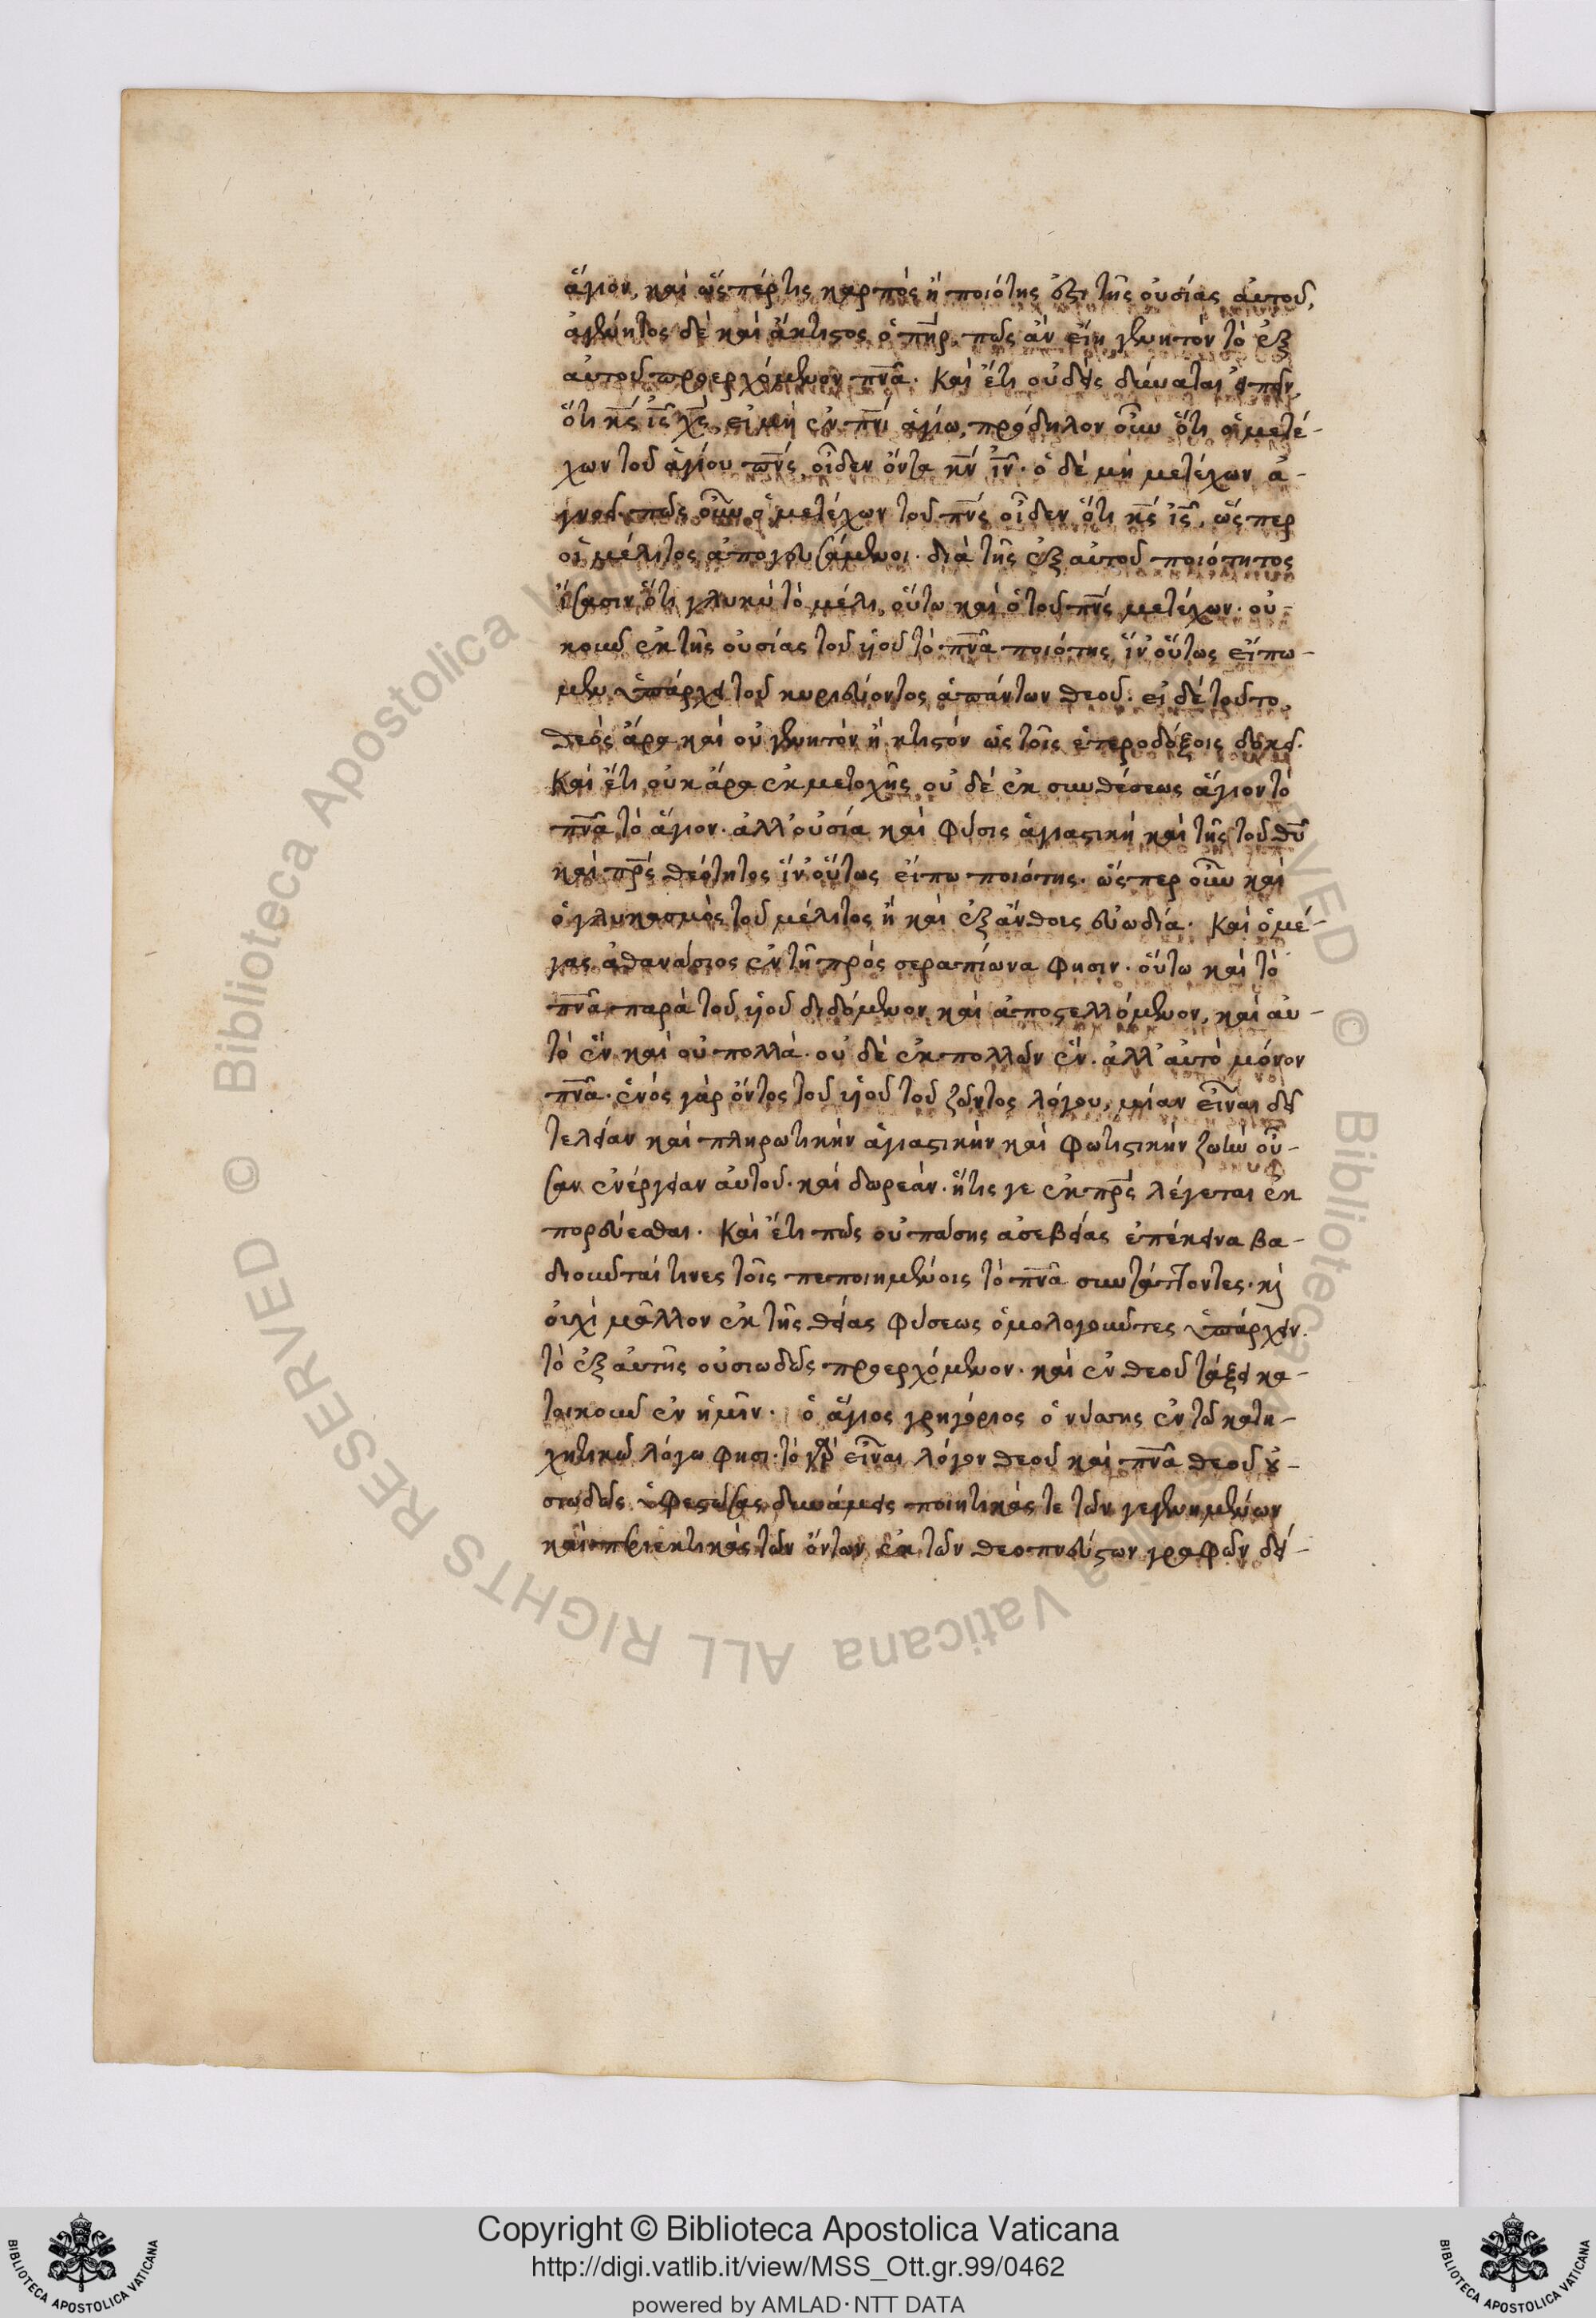 ἅγιον, καὶ ὥς πέρ τις καρπὸς ἢ ποιότης ἐστι τῆς οὐσίας αὐτοῦ,
ἀγένητος δὲ καὶ ἄκτιστος ὁ πη̅ρ. πῶς ἂν εἴη γενητὸν τὸ ἐξ
αὐτοῦ προερχόμενον πνα̅. Καὶ ἔτι οὐδεὶς δύναται εἰπεῖν
ὅτι κς̅ ις̅ χς̅, εἰ μὴ ἐν πνι̅ ἁγίω, πρόδηλον οὖν ὅτι ὁ μετέ-
χων τοῦ ἁγίου πνς̅ οἶδεν ὄντα κν̅ ιν̅. ὁ δὲ μὴ μετέχων ἀ-
γνοεῖ. πῶς οὖν ὁ μετέχων τοῦ πνς̅ οἶδεν ὅτι κς̅ ις̅, ὥς περ
οἱ μέλιτος ἀπογευσάμενοι. διὰ τῆς ἐξ αὐτοῦ ποιότητος
ἴσασιν ὅτι γλυκὺ τὸ μέλι, οὕτω καὶ ὁ τοῦ πνς̅ μετέχων. οὐ-
κοῦν ἐκ τῆς οὐσίας τοῦ υἱοῦ τὸ πνα̅ ποιότης, ἵν' οὕτως εἴπω-
μεν ὑπάρχει τοῦ κυριεύοντος ἁπάντων θεοῦ. εἰ δὲ τοῦτο,
θεὸς ἄρα καὶ οὐ γενητὸν ἢ κτιστὸν ὡς τοῖς ἑτεροδόξοις δοκεῖ.
Καὶ ἔτι οὐκ ἄρα ἐκ μετοχῆς οὐ δὲ ἐκ συνθέσεως ἅγιον τὸ
πνα̅ τὸ ἅγιον. ἀλλ' οὐσία καὶ φύσις ἁγιαστικὴ καὶ τῆς τοῦ θυ̅
καὶ πρς̅ θεότητος ἵν' οὕτως εἴπω ποιότης. ὥς περ οὖν καὶ
ὁ γλυκασμὸς τοῦ μέλιτος ἢ καὶ ἐξ ἄνθους εὐωδία. Καὶ ὁ μέ-
γας ἀθανάσιος ἐν τῆ πρὸς σεραπίωνα φησιν. οὕτω καὶ τὸ
πνα̅ παρὰ τοῦ υἱοῦ διδόμενον καὶ ἀποστελλόμενον, καὶ αὐ-
τὸ ἓν καὶ οὐ πολλά. οὐ δὲ ἐκ πολλῶν ἕν. ἀλλ' αὐτὸ μόνον
πνα̅. ἑνὸς γὰρ ὄντος τοῦ υἱοῦ τοῦ ζῶντος λόγου, μίαν εἶναι δεῖ
τελείαν καὶ πληρωτικὴν ἁγιαστικὴν καὶ φωτιστικὴν ζωὴν οὖ-
σαν ἐνέργειαν αὐτοῦ. καὶ δωρεάν. ἥτις γε ἐκ πρς̅ λέγεται ἐκ
πορεύεσθαι. Καὶ ἔτι πῶς οὐ πάσης ἀσεβείας ἐπέκεινα βα-
διοῦνταί τινες τοῖς πεποιημένοις τὸ πνα̅ συντάττοντες. κὶ
οὐχὶ μᾶλλον ἐκ τῆς θείας φύσεως ὁμολογοῦντες ὑπάρχειν.
τὸ ἐξ αὐτῆς οὐσιωδῶς προερχόμενον. καὶ ἐν θεοῦ τάξει κα-
τοικοῦν ἐν ἡμῖν. ὁ ἅγιος γρηγόριος ὁ νύσης ἐν τῶ κατη-
χητικῶ λόγω φησι. τὸ γὰρ εἶναι λόγον θεοῦ καὶ πνα̅ θεοῦ οὐ-
σιωδῶς ὑφεστώσας δυνάμεις ποιητικάς τε τῶν γεγενημένων
καὶ περιεκτικὰς τῶν ὄντων ἐκ τῶν θεοπνεύστων γραφῶν δεί-
Copyright © Biblioteca Apostolica Vaticana
http://digi.vatlib.it/view/MSS_Ott.gr.99/0462
powered by AMLAD·NTT DATA
BIBLIOTECA APOSTOLICA VATICANA
BIBLIOTECA APOSTOLICA VATICANA
© Biblioteca Apostolica Vaticana ALL RIGHTS RESERVED